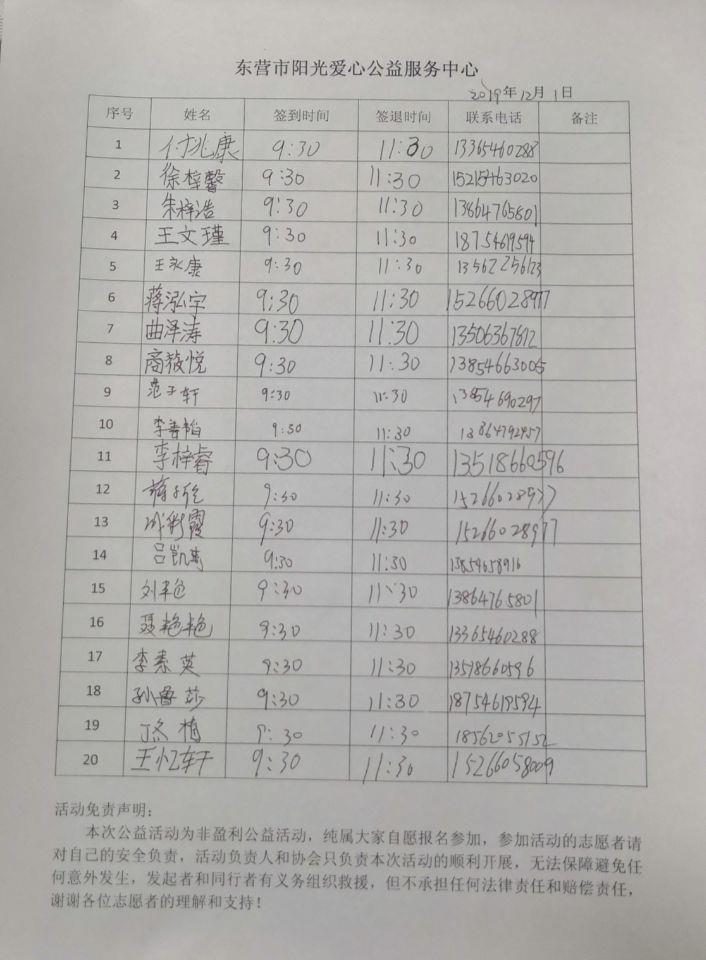 东营市阳光爱心公益服务中心
2019年12月1日
序号 姓名 签到时间 签退时间 联系电话 备注
1 付兆康 9:30 11:30 13365460288
2 徐梓馨 9:30 11:30 15215463020
3 朱梓浩 9:30 11:30 13864765801
4 王文瑾 9:30 11:30 18754619594
5 王永康 9:30 11:30 13562256123
6 蒋泓宇 9:30 11:30 15266028977
7 曲泽涛 9:30 11:30 13506367812
8 商薇悦 9:30 11:30 13854663005
9 范子轩 9:30 11:30 13854690297
10 李 9:30 11:30 13864792957
11 李梓睿 9:30 11:30 13518660596
12 9:30 11:30 15266028977
13 霞 9:30 11:30 15266028977
14 吕凯 9:30 11:30 13854658916
15 刘 9:30 11:30 13864765801
16 聂艳艳 9:30 11:30 13365460288
17 李素英 9:30 11:30 13518660596
18 孙鲁莎 9:30 11:30 18754619594
19 丁冬梅 9:30 11:30 18562055152
20 王忆轩 9:30 11:30 15266058009
活动免责声明：
本次公益活动为非盈利公益活动，纯属大家自愿报名参加，参加活动的志愿者请
对自己的安全负责，活动负责人和协会只负责本次活动的顺利开展，无法保障避免任
何意外发生，发起者和同行者有义务组织救援，但不承担任何法律责任和赔偿责任，
谢谢各位志愿者的理解和支持！